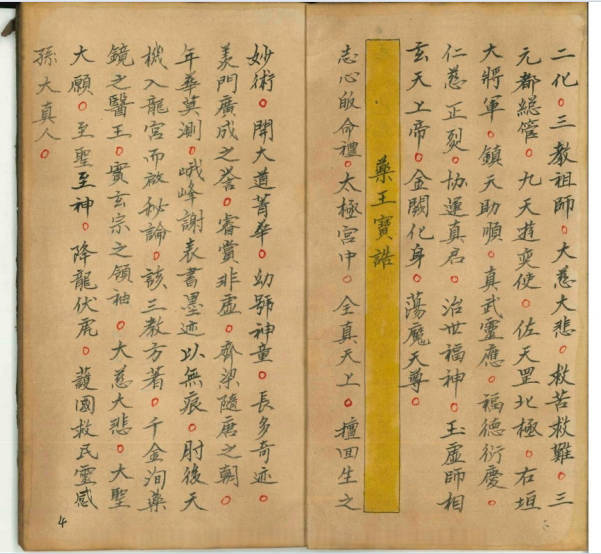 二化。三教祖師。大慈大悲。救苦救難。三
元都總管。九天遊奕使。佐天罡北極。右垣
大將軍。鎮天助順。真武靈應。福德衍慶。
仁慈正烈。協運真君。治世福神。玉虛師相
玄天上帝。金闕化身。蕩魔天尊。
藥王寶誥
志心皈命禮。太極宮中。全真天上。擅回生之
妙術。開大道菁華。幼號神童。長多奇迹。
羨門廣成之譽。睿賞非虛。齊梁隨唐之朝。
年華莫測。峨峰謝表書墨迹以無痕。肘後天
機入龍宮而啟秘論。該三教方著。千金洵藥
鏡之醫王。實玄宗之領袖。大慈大悲。大聖
大願。至聖至神。降龍伏虎。護國救民靈感
孫大真人。
4